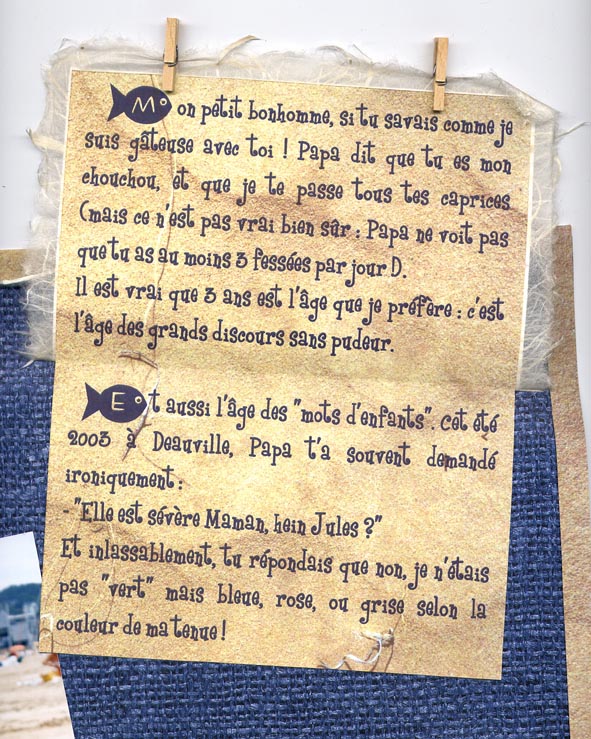 Mon petit bonhomme, si tu savais comme je
suis gâteuse avec toi ! Papa dit que tu es mon
chouchou, et que je te passe tous tes caprices
(mais ce n'est pas vrai bien sûr : Papa ne voit pas
que tu as au moins 3 fessées par jour D.
Il est vrai que 3 ans est l'âge que je préfère : c'est
l'âge des grands discours sans pudeur.
Et aussi l'âge des "mots d'enfants". Cet été
2003 à Deauville, Papa t'a souvent demandé
ironiquement :
- "Elle est sévère Maman, hein Jules ?"
Et inlassablement, tu répondais que non, je n'étais
pas "vert" mais bleue, rose, ou grise selon la
couleur de ma tenue !